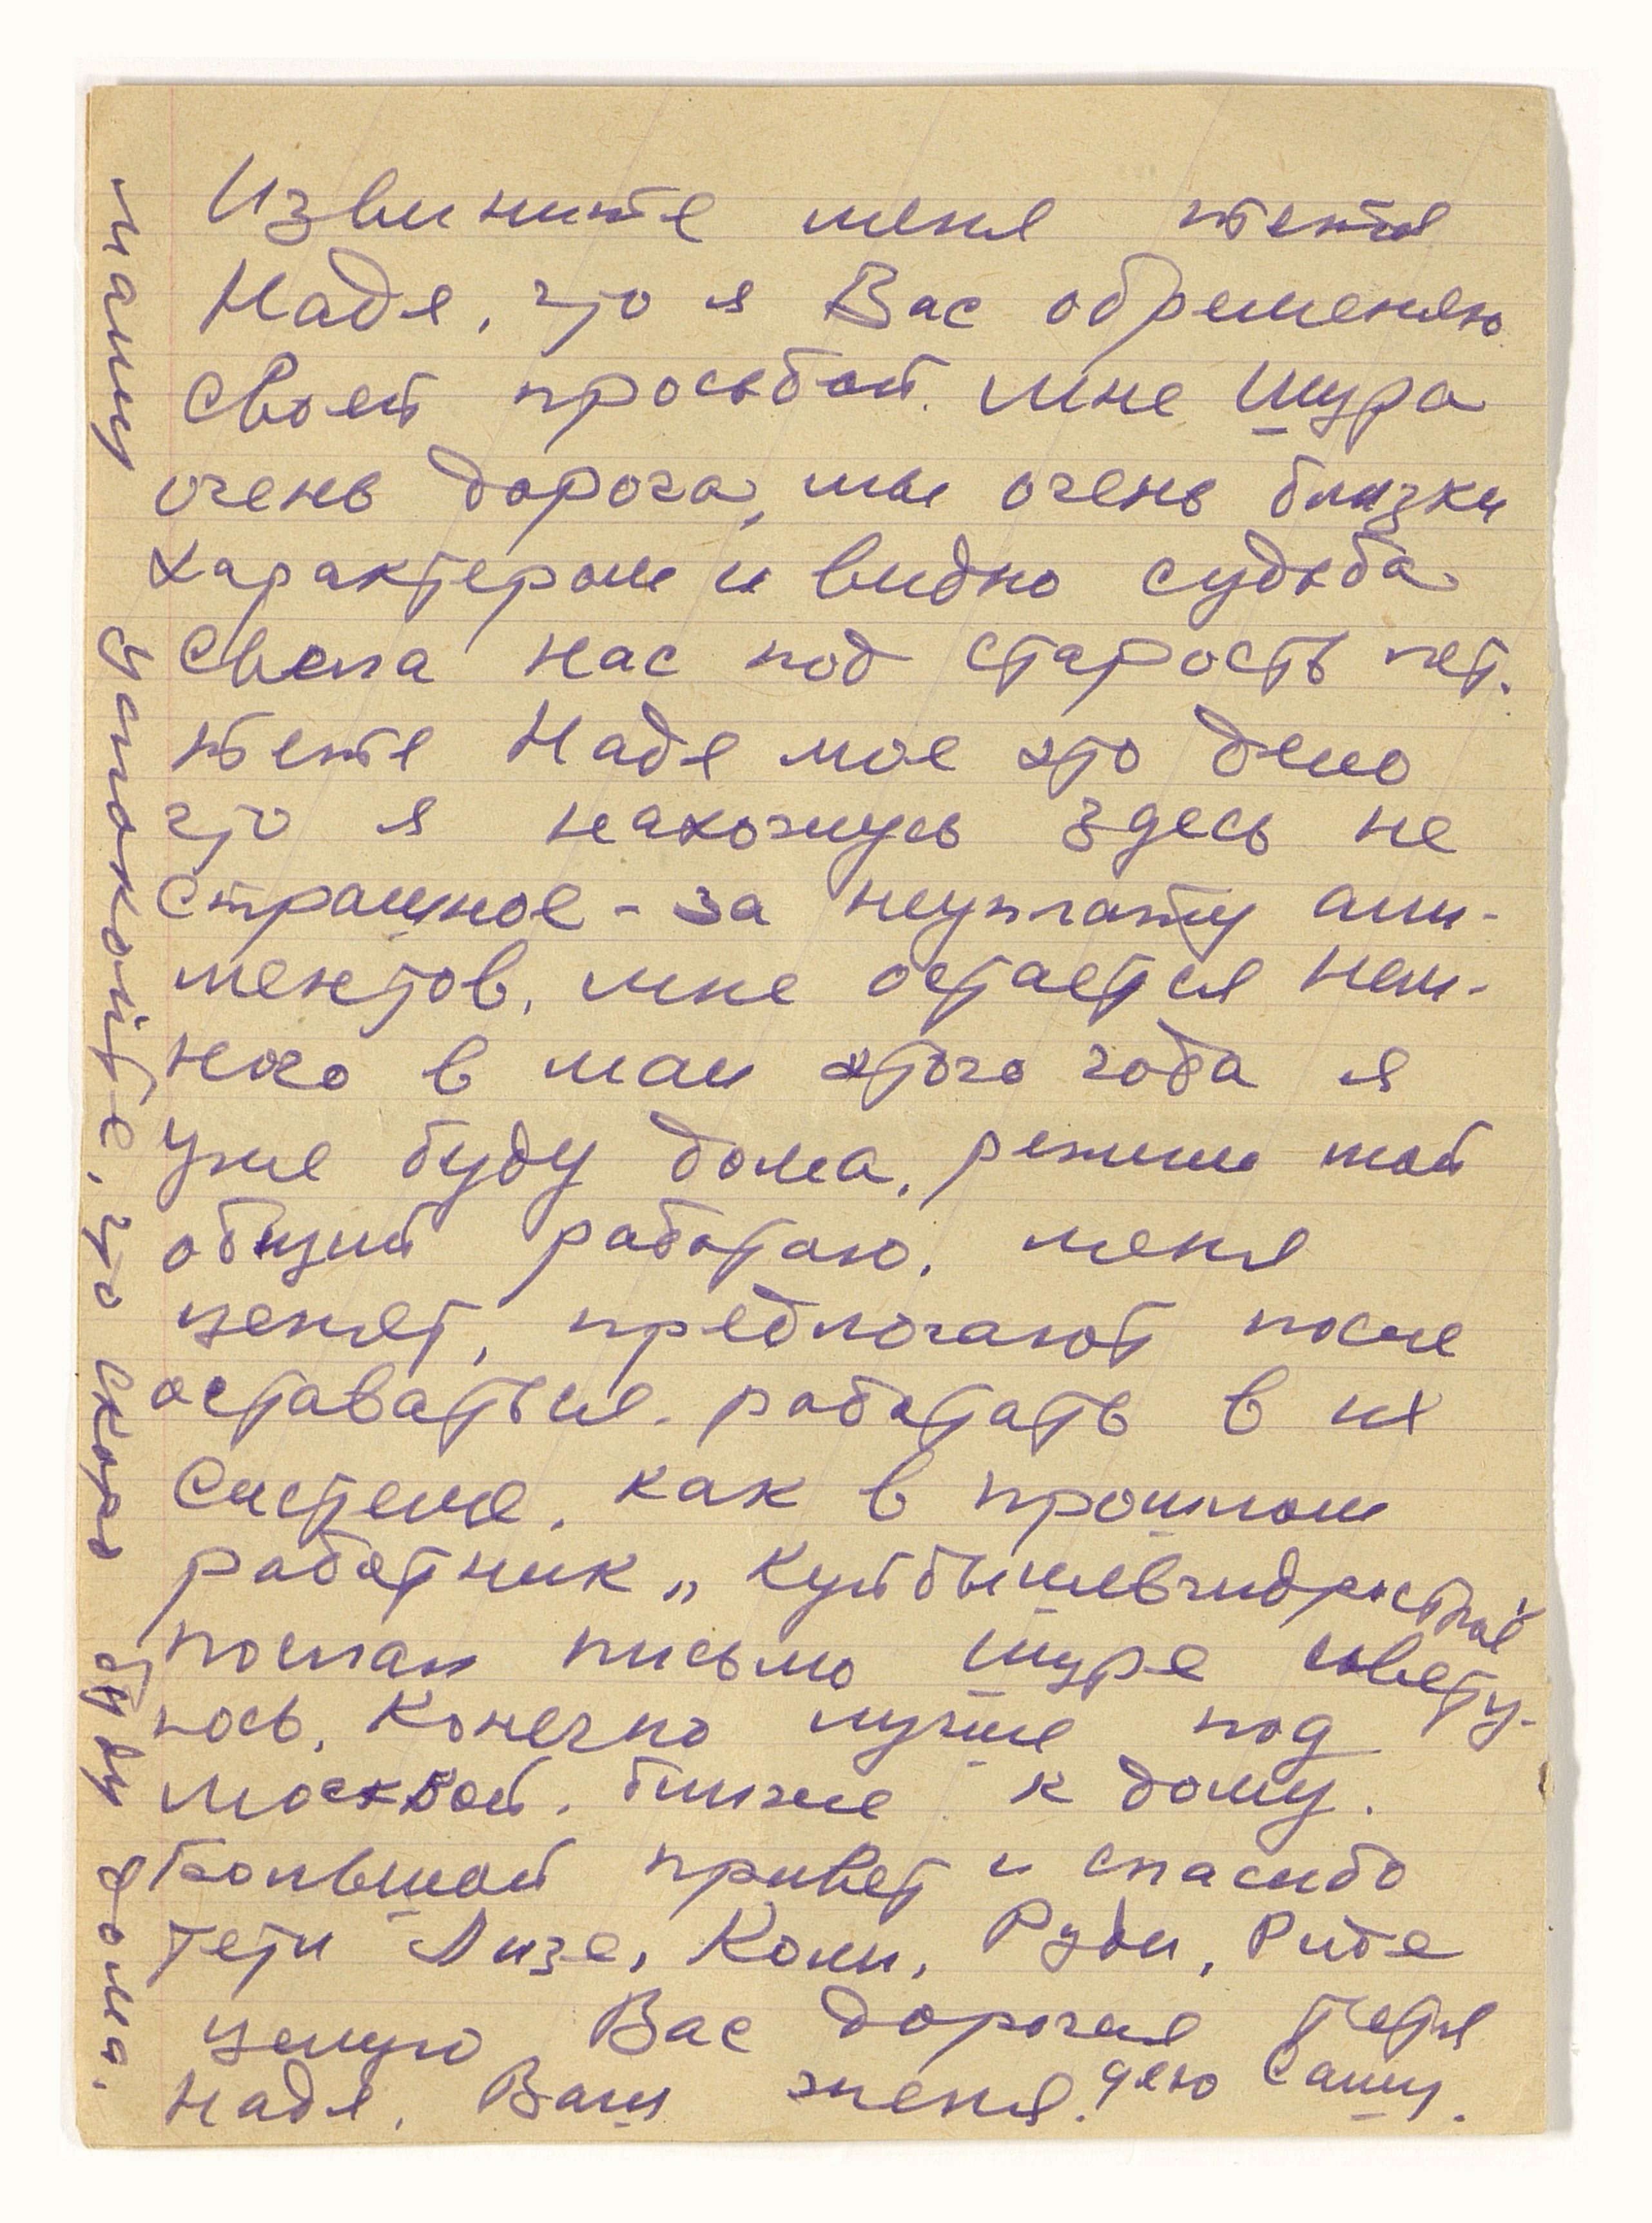 Извините меня тетя
Надя, что я Вас обременяю
своей просьбой. Мне Шура
очень дорога, мы очень близки
характером и видно судьба
свела нас под старость лет.
тетя Надя мое это дело
что я нахожусь здесь не
страшное - за неуплату али-
ментов, мне остается нем-
ного в мае этого года я
уже буду дома, режим мой
общий работаю, меня
ценят, предлогают после
оставаться работать в их
системе, как в прошлом
работник „Куйбышевгидрострой"
послал письмо Шуре совету-
юсь. Конечно лучше под
Москвой, ближе к дому.
Большой привет и спасибо
тети Лизе, Коли, Руди, Рите
целую Вас дорогая тетя
Надя. Ваш Женя. дею Сашу.
Машу успокойте, что скоро буду дома.